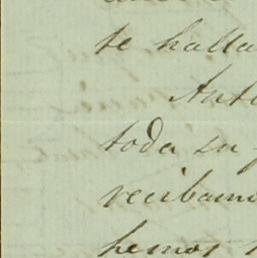 te halla
Ant
toda su
recibamo
hemos